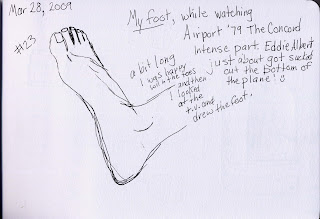 Mar 28, 2009
#23
My foot, while watching
Airport '79 The Concord
Intense part. Eddie Albert
just about got sucked
out the bottom of
the plane!
a bit long
I was happy
with the toes
and then
I looked
at the
t.v. and
drew the foot.